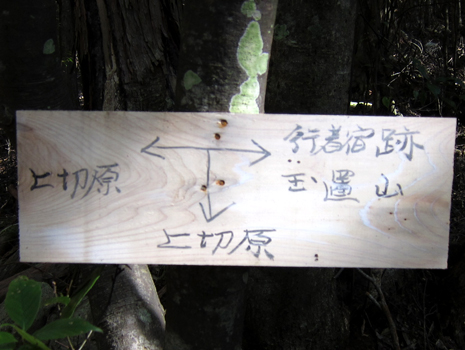 行者宿跡
玉置山
上切原
上切原